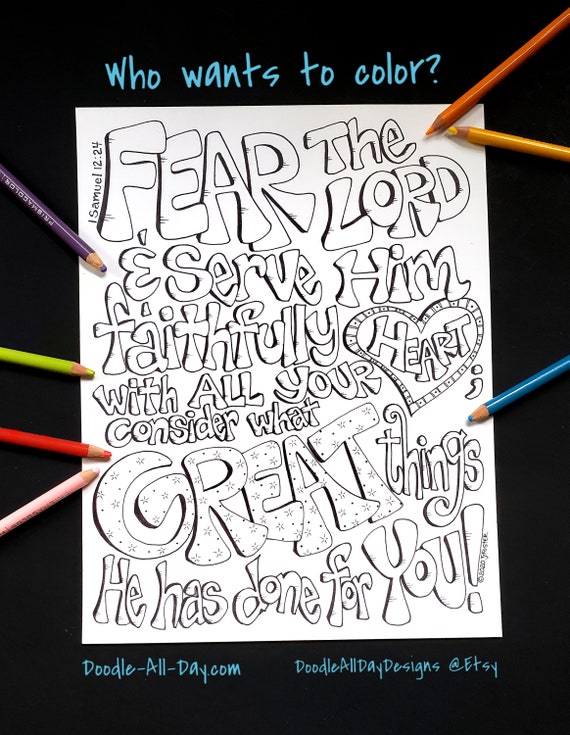 Who wants to color?
1 Samuel 12:24
FEAR The
LORD
& Serve Him
faithfully
with ALL YOUR HEART;
consider what
GREAT things
He has done for YOU!
Doodle-All-Day.com
DoodleAllDayDesigns @Etsy